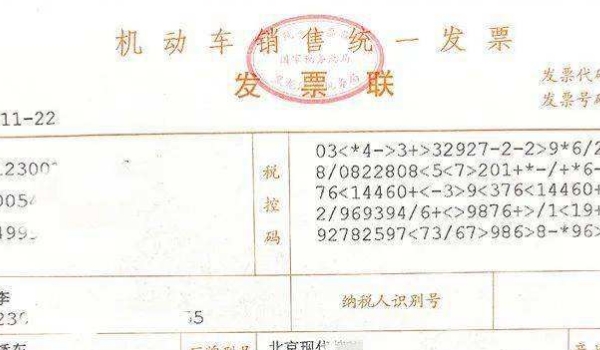 机动车销售统一发票
国家税务总局
发票联
发票代码
发票号码
11-22
12300
0054
税控码
03<*4->3+>32927-2-2>9*6/2
8/0822808<5<7>201+*-/+*6-
76<14460+<-3>9<376<14460+
2/969394/6+<>9876+>/1<19+
92782597<73/67>986>8-*96>
李
230
55
纳税人识别号
北京现代